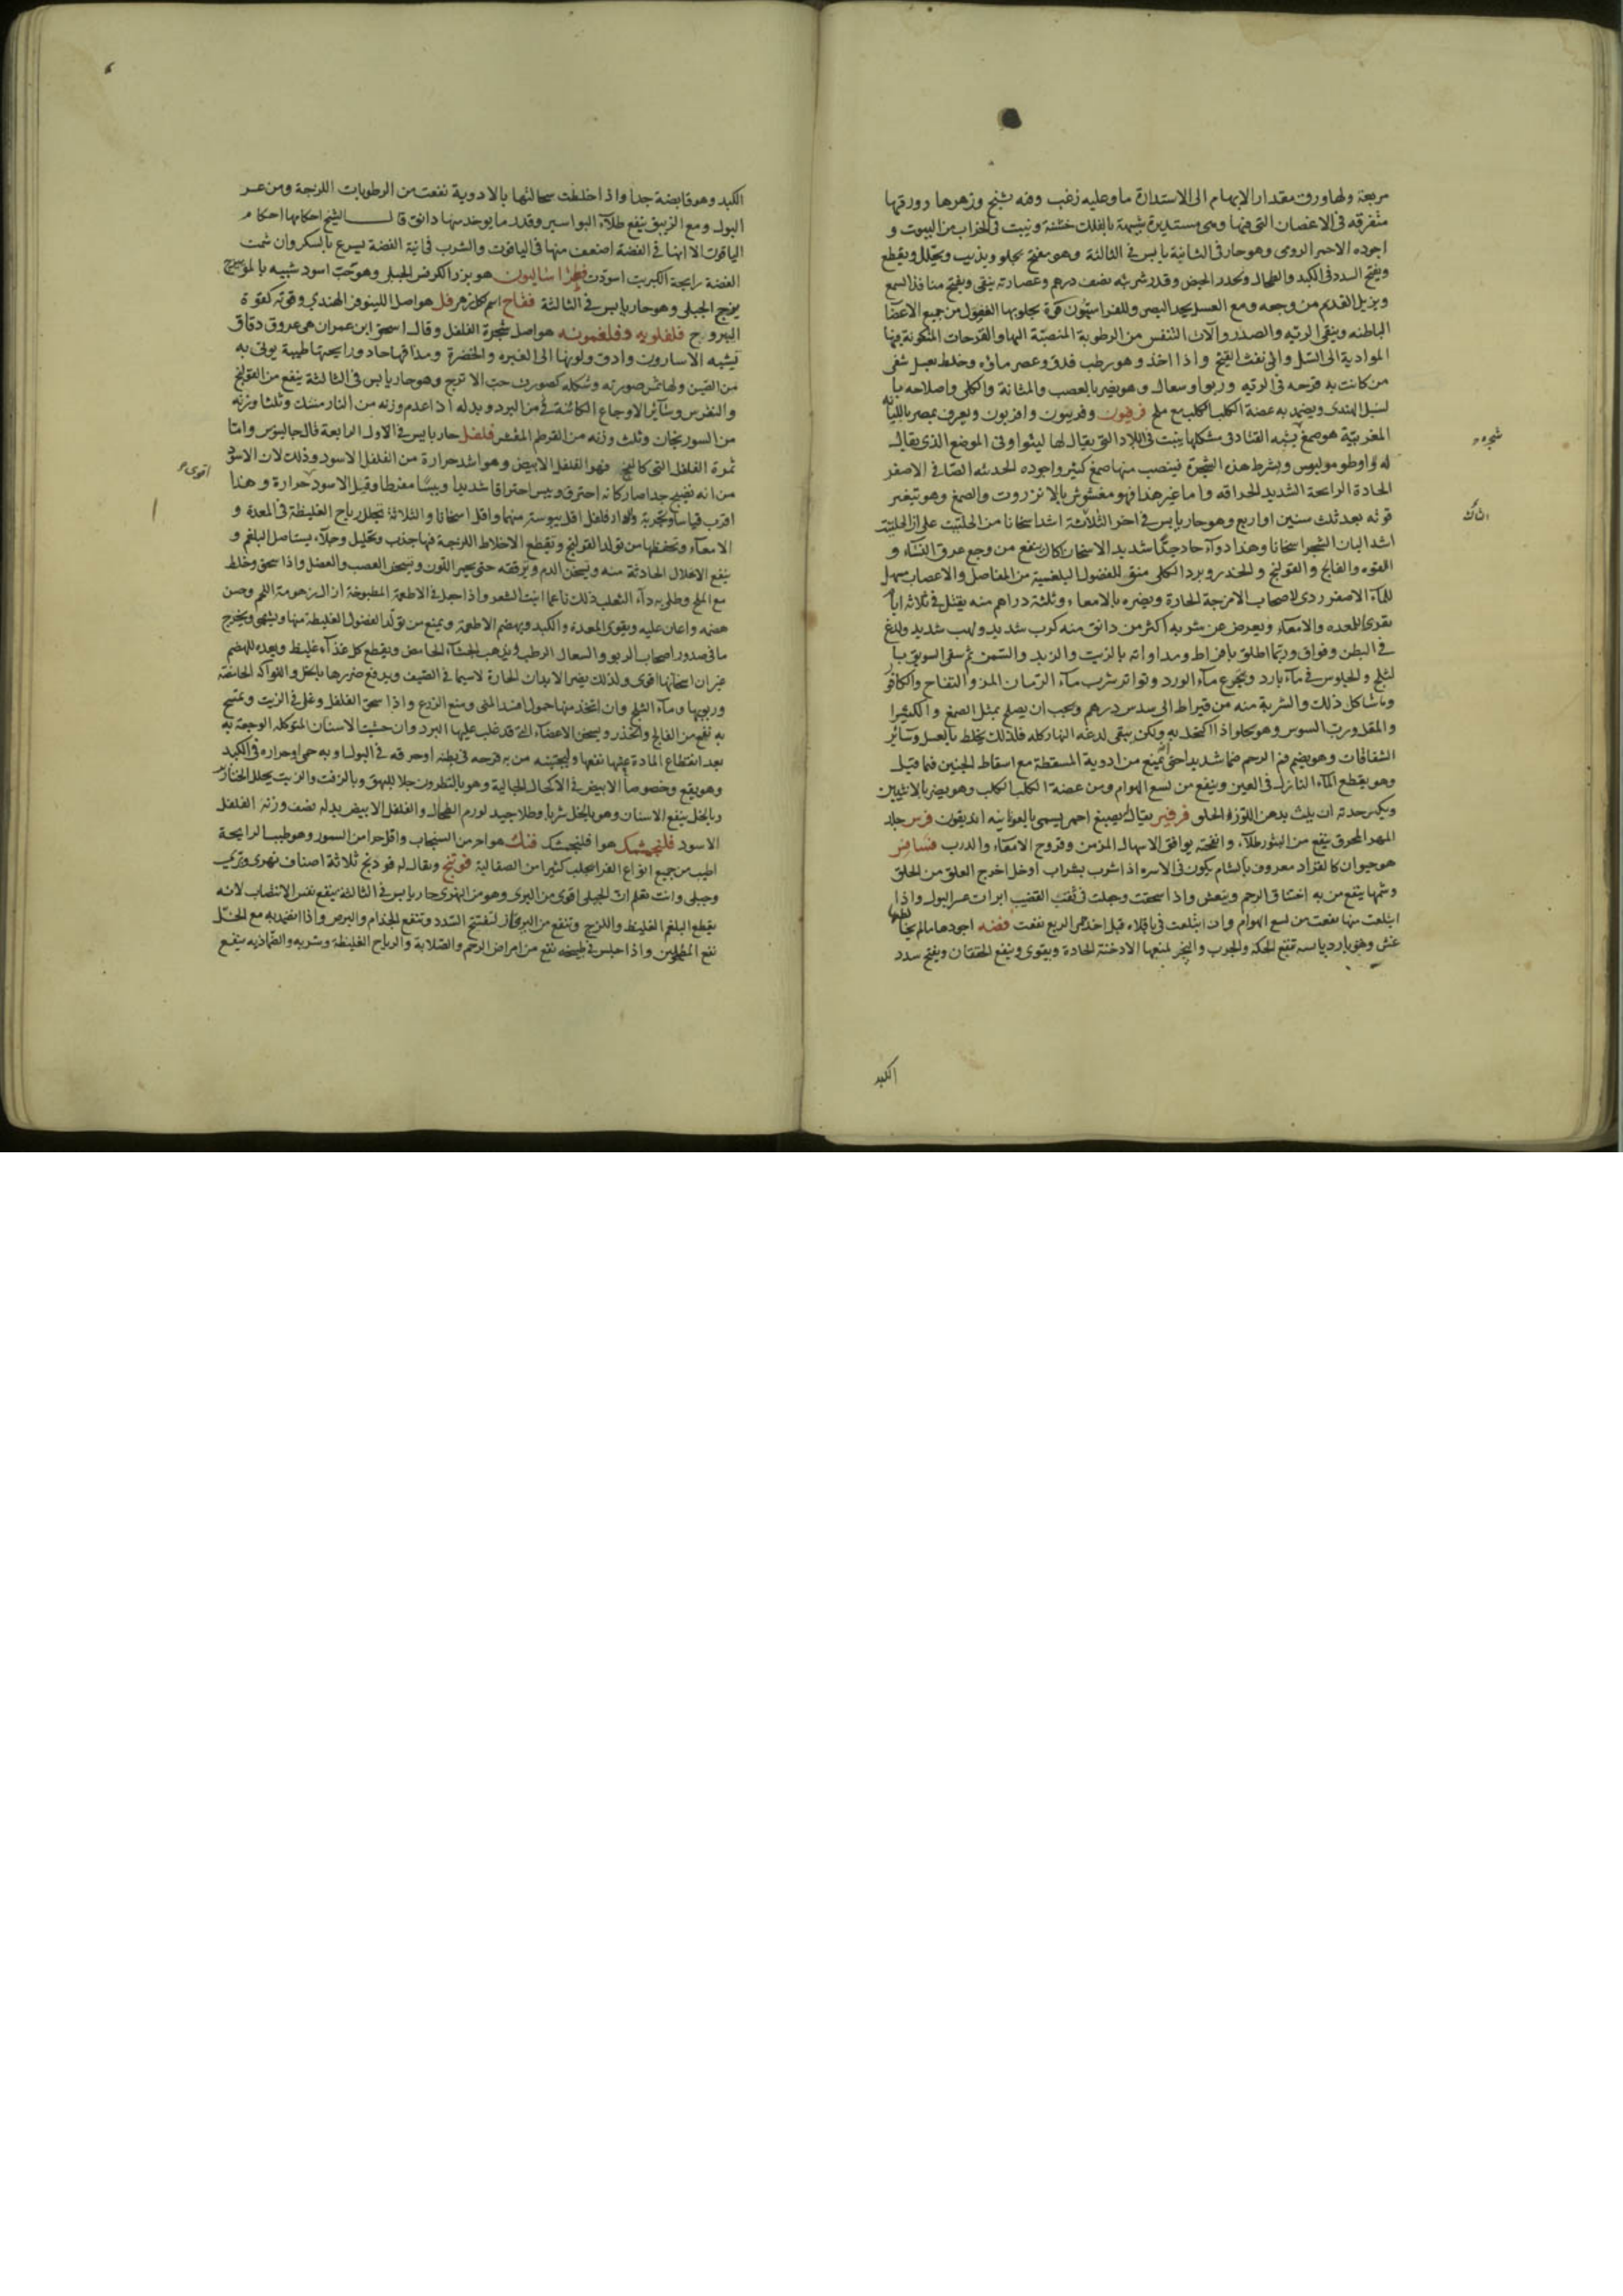 مربعة ولها ورق مقدار الابهام الى الاستدارة ماو عليه زغب وفيه تشنج وزهرها وورقها
متفرقه فى الاعصان التى فيها وهى مستديرة شبيهة بالفلك خشنة وينبت فى الخراب من البيوت و
اجوده الاحمر الرومى وهو حار فى الثانية يابس فى الثالثة وهو مفتح يجلو ويذيب ويحلل ويقطع
ويفتح السدد فى الكبد والطحال ويحدر الحيض وقدر شربته نصف درهم وعصارته ينقى ويفتح منافذ السمع
ويزيل القديم من وجعه ومع العسل يحد البصر وللفراسيون قوة يجلو بها الفضول من جميع الاعضا
الباطنه وينقى الريه والصدر وآلات التنفس من الرطوبة المنصبّة اليها والقرحات المتكونة فيها
الموادية الى السّل والى نفث القيح واذا اخذ وهو رطب فدق وعصر ماؤه وخلط بعسل شفى
من كانت به قرحه فى الريه وربو وسعال وهو يضر بالعصب والمثانة والكلى واصلاحه با
لسنبل الهندى ويضمد به عضة الكلب الكلب مع ملح فرفيون وفربيون وافربيون ويعرف بمصر باللبانه
المغربيّة هو صمغ يشبه القثا فى شكلها ينبت فى البلاد التى يقال لها لينوا وفى الموضع الذى يقال
شجره
له اوطومولوس ويشرط هذه الشجرة فينصب منها صمغ كثير واجوده الحديثه الصافى الاصفر
الحادة الرايحة الشديد الحراقه واما غير هذا فهو مغشوش بالانزروت والصمغ وهو يتغير
قوته بعد ثلث سنين او اربع وهو حار يابس فى اخر الثلاثة اشد اسخانا من الحلتيت على ان الحلتيت
اشد البان الشجر اسخانا وهذا دوآء حاد جدّا شديد الاسخان اكال ينفع من وجع عرق النسآء و
اللقوه والفالج والقولنج والخدر وبرد الكلى منق للفضول البلغمية من المفاصل والاعصاب مسهل
للمآء الاصفر ردى لاصحاب الامزجة الحارة ويضره بالامعاء وثلثة دراهم منه يقتل فى ثلاثة ايام
بقرح المعده والامعآء ويعرض عن شربه اكثر من دانق منه كرب شديد ولهب شديد ولدغ
فى البطن وفواق وربّما اطلق بافراط ومداواته بالزيت والزبد والسّمن ثم سقى السويق با
لثلج والجلوس فى مآء بارد ويجرع مآء الورد وتواتر شرب مآء الرّمان المز والتفاح والكافور
وما شاكل ذلك والشربة منه من قيراط الى سدس درهم ويجب ان يصلح بمثل الصمغ والكثيرا
والمقل ورب السوس وهو يجلو اذا اكتحل به ولكن يبقى لدغه النهار كله فلذلك يخلط بالعسل وسائر
الشفافات وهو يضم فم الرحم ضما شديدا حتى يمنع من ادوية المسقطة مع اسقاط الجنين فيما قيل
وهو يقطع المآء النازل فى العين وينفع من لسع الهوام ومن عضة الكلب الكلب وهو يضر بالانثيين
ويكسر حدته ان يلت بدهن اللوز او الحلو فرفير يقال لصبغ احمر يسمى باليونانيه اندريقون فرس جلد
المهر المحرق ينفع من البثور طلآء وانفحته يوافق الاسهال المزمن وقروح الامعآء والدرب فسافس
هو حيوان كالقراد معروف بالشام يكون فى الاسره اذا شرب بشراب او خل اخرج العلق من الحلق
وشمها ينفع من به اختناق الرحم وينعش واذا سحقت وجعلت فى ثقب القضيب ابرات عسر البول واذا
ابتلعت منها نفعت من لسع الهوام وان ابتلعت فى باقلاء قبل اخذ حمى الربع نفعت فضه اجودها ما لم يخالطها
غش وهو بارد يابسه تنفع الحكة والجرب والبخر لمنعها الادخنة الحادة ويقوى وينفع الخفقان ويفتح سدد
الكبد
الكبد وهو قابضة جدا واذا خلطت سحالتها بالادوية نفعت من الرطوبات اللزجة ومن عسر
البول ومع الزيبق ينفع طلآء البواسير وقدر ما يوخد منها دانق قال الشيخ احكامها احكام
الياقوت الا انها فى الفضة اضعف منها فى الياقوت والشرب فى انية الفضة يسرع بالسكر وان شمت
الفضة رايحة الكبريت اسودت فطراساليون هو بزر الكرفس الجبلى وهو حب اسود شبيه بالموميزج
يخرج الجبلى وهو حار يابس فى الثالثة فقاح اسم كل زهر فل هو اصل اللينوفر الهندى وقوته كقوة
اليبروح فلفلويه وفلفمونه هو اصل شجرة الفلفل وقال اسحق ابن عمران هى عروق دقاق
يشبه الاسارون وادق ولونها الى الغبره والخضرة ومذاقها حاد ورايحتها طيبة يوتى به
من الصين ولها ثمر صورته وشكله كصورة حب الاترج وهو حار يابس فى الثالثة ينفع من القولنج
والنقرس وسآئر الاوجاع الكائنة من البرد وبدله اذا عدم وزنه من النارمشك وثلثا وزنه
من السورنجان وثلث وزنه من القرطم المقشر فلفل حار يابس فى الاول الرابعة قال جالينوس واما
ثمرة الفلفل التى كالفج فهو الفلفل الابيض وهو اشد حرارة من الفلفل الاسود وذلك لان الاسود
اقوى
من انه نضيج جدا صار كانه احترق ويبس احتراقا شديدا ويبسا مفرطا وقيل الاسود حرارة وهذا
اقرب قياسا وتجربة والدار فلفل اقل يبوسته منهما واقل اسخانا والثلاثة تحلل رياح الغليظة فى المعدة و
الامعآء وتحفظها من تولد القولنج وتقطع الاخلاط اللزجة فيها جذب وتحليل وجلآء يستاصل البلغم و
ينفع الاعلال الحادثة منه ويسخن الدم ويرققه حتى يحمر اللون ويسخن العصب والعضل واذا سحق وخلط
مع الملح وطلى به دآء الثعلب ذلك ناعما انبت الشعر واذا جعل فى الاطعمة المطبوخة ازال زهومة اللحم وحسن
هضمه واعان عليه ويقوى المعدة والكبد ويهضم الاطعمة ويمنع من تولّد الفضول الغليظة منها ويشهى ويخرج
ما فى صدور اصحاب الربو والسعال الرطب ويذهب الجشآء الحامض ويقطع كل غذآء غليظ ويعده للهضم
غير ان اسخانها اقوى ولذلك يضر الابدان الحارة لاسيما فى الصيف ويدفع ضررها بالخل والفواكه الحامضة
وربوبها ومآء الثلج وان اتخذ منها حمول افسد المنى ومنع الزرع واذا سحق الفلفل وغلى فى الزيت وتمسح
به نفع من الفالج والخدر ويسخن الاعضآء التى قد غلب عليها البرد وان حشيت الاسنان المتوكله الوجعة به
بعد انقطاع المادة عنها نفعها وليجتنبه من به قرحه فى بطنه او حرقه فى البول او به حمى او حراره فى الكبد
وهو يقع وخصوصا الابيض فى الاكحال الجاليه وهو بالنطرون جلا للبهق وبالزفت والزيت يحلل الخنازير
وبالخل ينفع الاسنان وهو بالخل شربا وطلا جيد لورم الطحال والفلفل الابيض بدله نصف وزنه الفلفل
الاسود فلنجمشك هو افلنجمشك فنك هو احر من السنجاب واقل حرا من السمور وهو طيب الرايحة
اطيب من جميع انواع الفرا يجلب كثيرا من الصقالبة فوتنج ويقال له فودنج ثلاثة اصناف نهرى وبرى
وجبلى وانت تعلم ان الجبلى اقوى من البرى وهو من النهرى حار يابس فى الثالثة ينفع نفس الانتصاب لانه
يقطع البلغم الغليظ واللزج وتنفع من اليرقان لتفتيح السّدد وتنفع الجذام والبرص واذا انضمد به مع الخـل
نفع المطحولين واذا جلس فى طبيخه نفع من امراض الرحم والصلابة والرياح الغليظة وشربه والضماد به ينفع